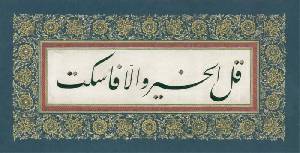 قل الخير والا فاسكت